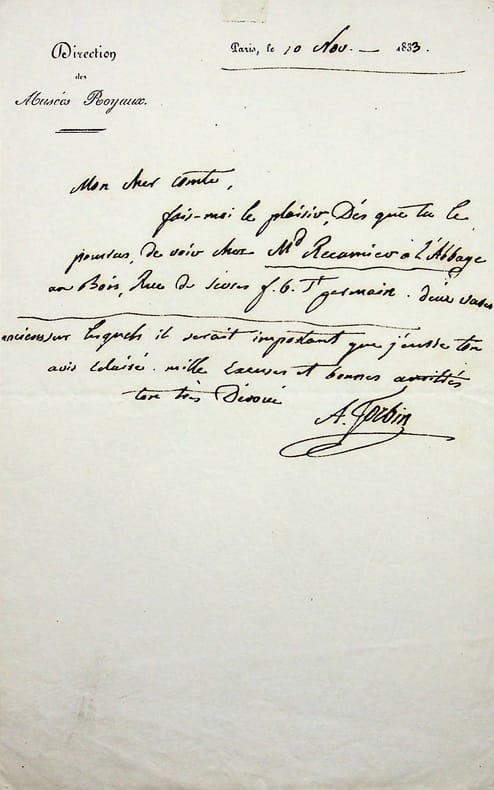 Direction
des
Musées Royaux.
Paris, le 10 Nov. — 1833.
Mon cher comte,
fais-moi le plaisir, Dès que tu le
pourras, de voir chez Md Recamier à l'Abbaye
au Bois, Rue de sèvres f. G. St germain. deux vases
anciens sur lesquels il serait important que j'eusse ton
avis éclairé. mille excuses et bonnes amitiés
ton très Dévoué
A. Forbin